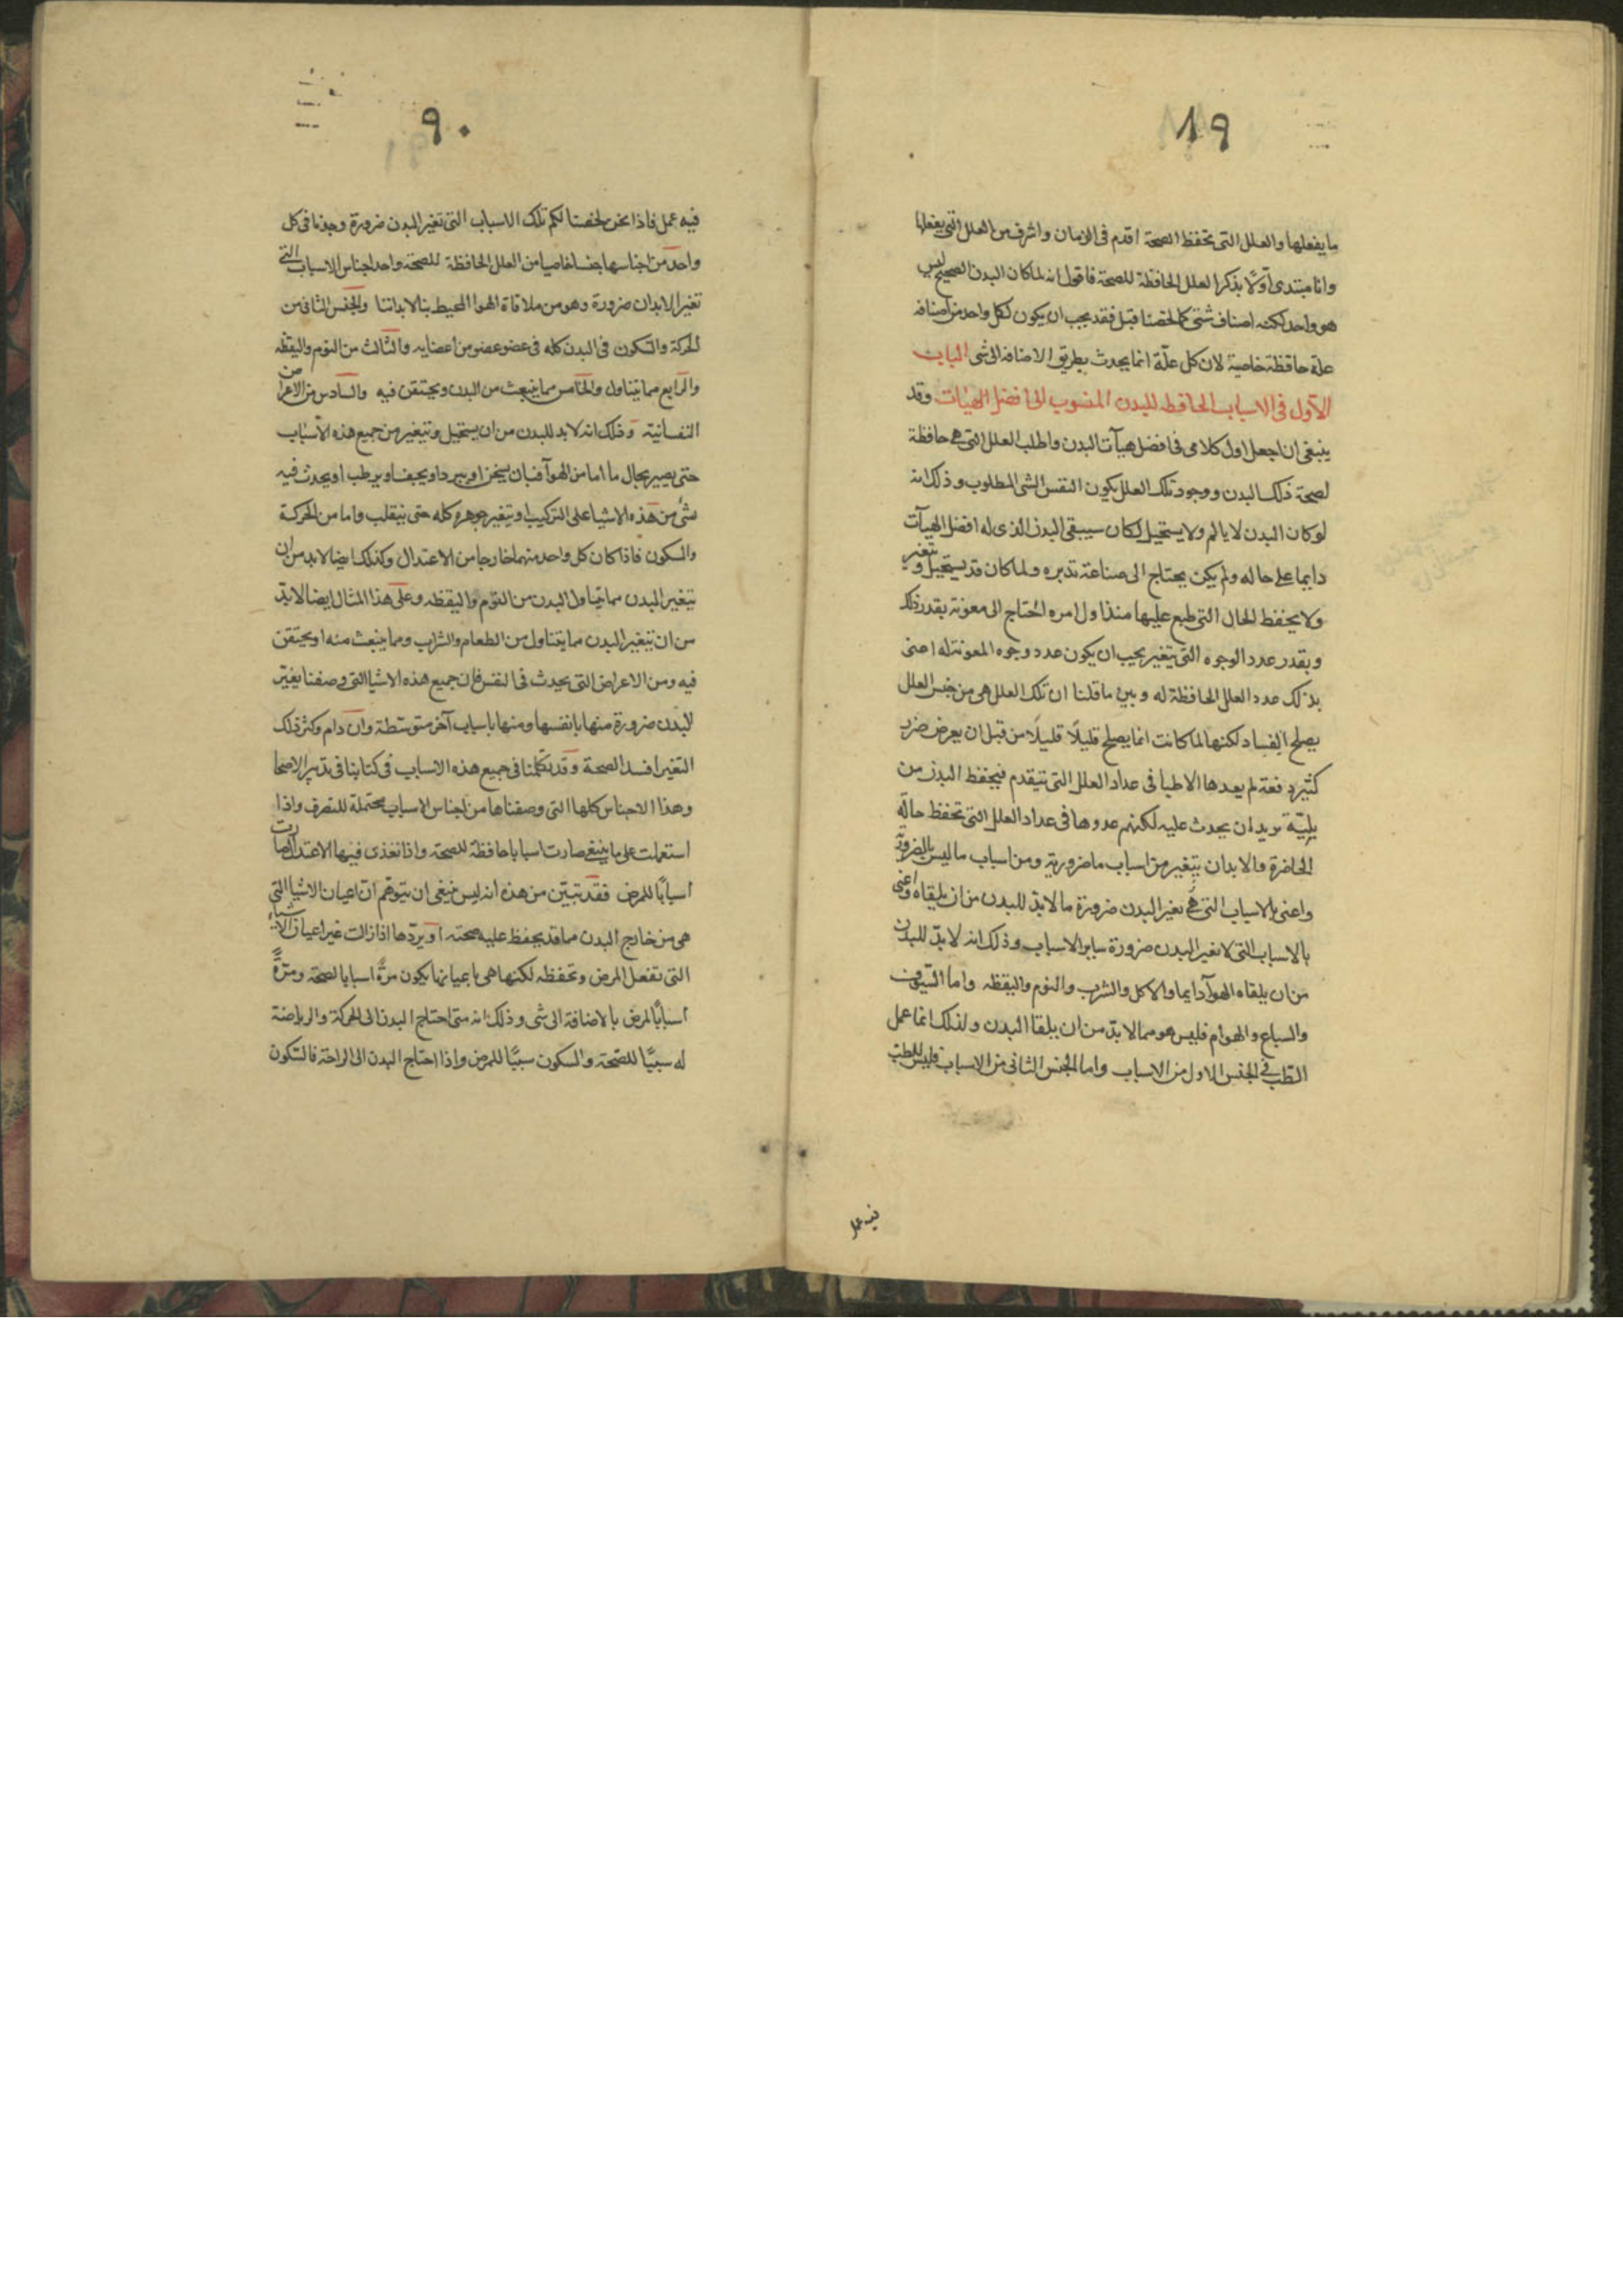 ١٩
ما يفعلها والعلل التى تحفظ الصحة اقدم فى الزمان واشرف من العلل التى يفعلها
وانا مبتدى اوّلا بذكر العلل الحافظة للصحة فاقول انه لما كان البدن الصحيح ليس
هو واحد لكنه اصناف شتى كما لخصنا قبل فقد يجب ان يكون لكل واحد من اصنافه
علة حافظة خاصية لان كل علّة انما يحدث بطريق الاضافه الى شى الباب
الاول فى الاسباب الحافظه للبدن المنسوب الى افضل الهيات وقد
ينبغى ان اجعل اول كلامى فى افضل هيآت البدن واطلب العلل التى هى حافظة
لصحة ذلك البدن ووجود تلك العلل يكون النفس الشى المطلوب وذلك انه
لو كان البدن لا يالم ولا يستحيل لكان سيبقى البدن الذى له افضل الهيآت
دايما على حاله ولم يكن يحتاج الى صناعة تدبره ولما كان قد يستحيل ويتغير
ولا يحفظ الحال التى طبع عليها منذ اول امره احتاج الى معونة بقدر ذلك
وبقدر عدد الوجوه التى يتغير يجب ان يكون عدد وجوه المعونة له اعنى
بذلك عدد العلل الحافظة له وبين ما قلنا ان تلك العلل هى من جنس العلل
يصلح الفساد لكنها لما كانت انما يصلح قليلًا قليلًا من قبل ان يعرض ضرر
كثير دفعة لم يعدها الاطبا فى عداد العلل التى تتقدم فيحفظ البدن من
بليّة يريد ان يحدث عليه لكنهم عدوها فى عداد العلل التى تحفظ حالة
الحاضرة والابدان يتغير من اسباب ما ضرورية ومن اسباب ما ليس بالضرورة
واعنى بالاسباب التى هى تغير البدن ضرورة ما لا بدّ للبدن من ان يلقاه واعنى
بالاسباب التى لا تغير البدن ضرورة ساير الاسباب وذلك انه لا بدّ للبدن
من ان يلقاه الهوآ دايما والاكل والشرب والنوم واليقظه واما السّيوف
والسباع والهوام فليس هو مما لا بدّ من ان يلقا البدن ولذلك انما عمل
الطب فى الجنس الاول من الاسباب واما الجنس الثانى من الاسباب فليس للطب
فيه عمل
٩٠
فيه عمل فاذا نحن لخصنا لكم تلك الاسباب التى تغير البدن ضرورة وجدنا فى كل
واحد من اجناسها جنسا خاصيا من العلل الحافظة للصحة واحد اجناس الاسباب التى
تغير الابدان ضرورة وهو من ملاقاة الهوا المحيط بنا لابداننا والجنس الثانى من
الحركة والسّكون فى البدن كله فى عضو عضو من اعضايه والثالث من النوم واليقظه
والرابع مما يتناول والخامس مما ينبعث من البدن ويحتقن فيه والسادس من الاعراض
النفسانية وذلك انه لا بد للبدن من ان يستحيل ويتغير من جميع هذه الاسباب
حتى يصير بحال ما اما من الهوآ فبان يسخن او يبرد او يجفف او يرطب او يحدث فيه
شىٔ من هذه الاشيا على التركيب او تتغير جوهره كله حتى ينقلب واما من الحركة
والسكون فاذا كان كل واحد منهما خارجا من الاعتدال وكذلك ايضا لا بد من ان
يتغير البدن مما يتناول البدن من النوم واليقظه وعلى هذا المثال ايضا لا بدّ
من ان يتغير البدن مما يتناول من الطعام والشراب ومما ينبعث منه او يحتقن
فيه ومن الاعراض التى يحدث فى النفس فان جميع هذه الاشيا التى وصفنا يغيّر
البدن ضرورة منها بانفسها ومنها باسباب آخر متوسّطة وان دام وكثر ذلك
التغير افسد الصحة وقد تكلمنا فى جميع هذه الاسباب فى كتابنا فى تدبير الاصحا
وهذا الاجناس كلها التى وصفناها من اجناس الاسباب محتملة للتصرف واذا
استعملت على ما ينبغى صارت اسبابا حافظة للصحة واذا تعدى فيها الاعتدال صارت
اسبابًا للمرض فقد تبيّن من هذه انه ليس ينبغى ان يتوهّم انّ اعيان الاشيا التى
هى من خارج البدن مما قد يحفظ عليه صحته او يردّها اذا زالت غير اعيان الاشياء
التى تفعل المرض وتحفظه لكنها هى باعيانها يكون مرّةً اسبابا لصحة ومرّةً
اسبابًا لمرض بالاضافة الى شى وذلك انه متى احتاج البدن الى الحركة والرياضة
له سببًا للصّحة والسكون سببًا للمرض واذا احتاج البدن الى الراحة فالسّكون